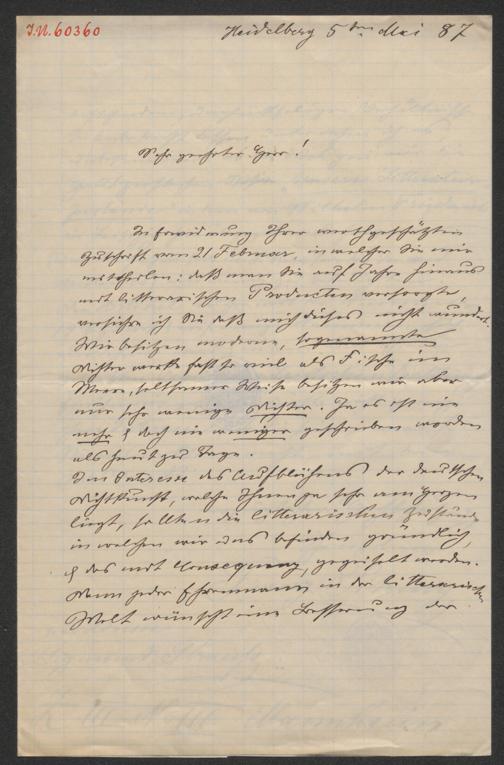 J.N. 60360
Heidelberg 5ten Mai 87
Sehr geehrter Herr!
In Erwiderung Ihrer werthgeschätzten
Zuschrift vom 21 Februar, in welcher Sie mir
mittheilen: daß man Sie auf Jahre hinaus
mit litterarischen Producten versorgte,
versichre ich Sie daß mich dieses nicht wundert.
Wir besitzen moderne, sogenannte
Dichterwerke fast so viel als Fische im
Meere, seltsamer Weise besitzen wir aber
nur sehr wenige Dichter. Ja es ist nie
mehr & doch nie weniger geschrieben worden
als heut zu Tage.
Im Interesse des Aufblühens der deutschen
Dichtkunst, welche Ihnen ja sehr am Herzen
liegt, sollten die litterarischen Zustände
in welchen wir uns befinden gründlich,
& das mit Consequenz, gegeißelt werden.
Denn jeder Ehrenmann in der litterarischen
Welt wünscht eine Besserung der